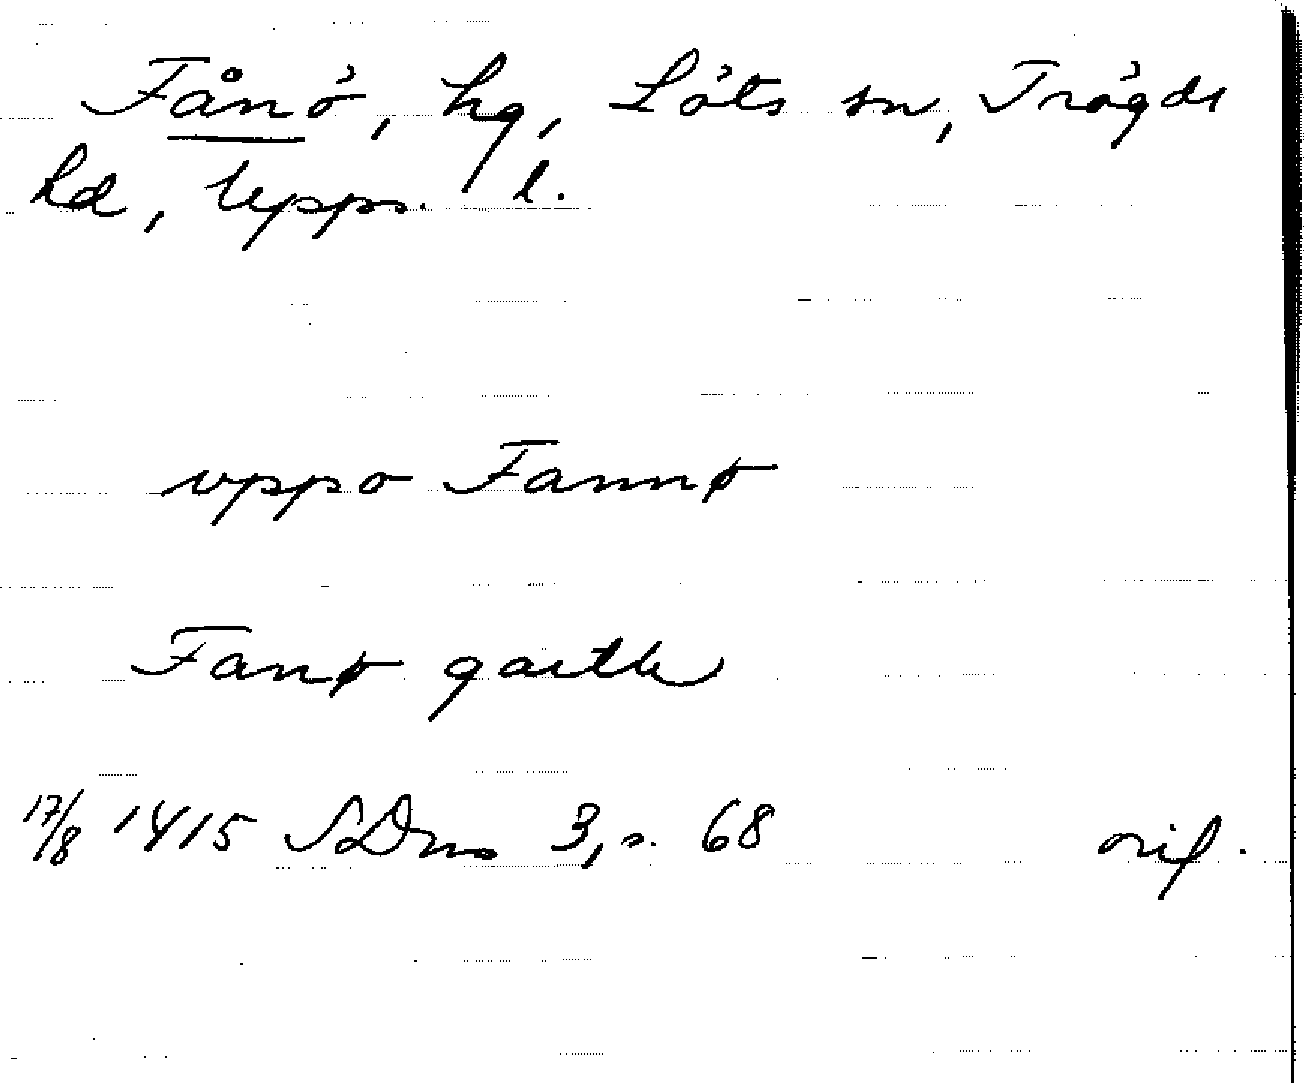 Fånö, hg, Löts sn, Trögds
hd, Upps. l.
vppo Fannø
Fanø garth
17/8 1415 SDns 3, s. 68 orig.